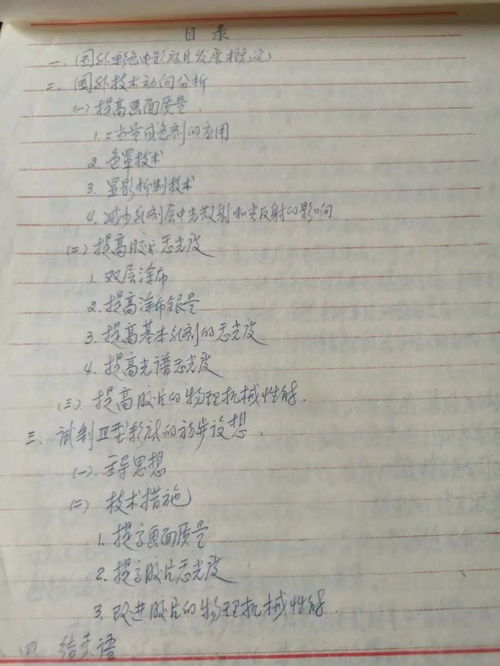 目录
一、国外彩色电影胶片发展概况
二、国外技术动向分析
(一)提高画面质量.
1.二当量成色剂的应用
2.色罩技术
3.显影抑制技术
4.减少乳剂层中光散射和光反射的影响
(二)提高胶片感光度
1.双层涂布
2.提高涂布银量
3.提高基本乳剂的感光度
4.提高光谱感光度
(三)提高胶片的物理机械性能.
三、试制Ⅱ型彩底的初步设想.
(一)主导思想
(二)技术措施
1.提高画面质量
2.提高胶片感光度
3.改进胶片的物理机械性能.
四、结束语